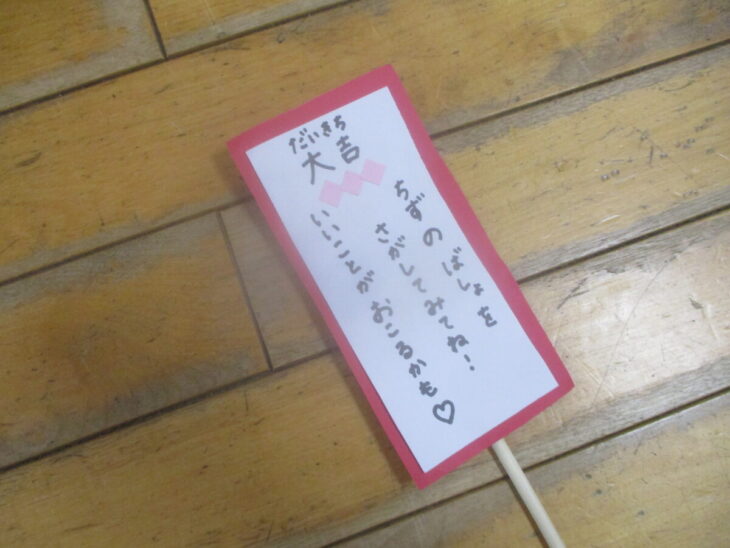 だいきち
大吉
ちずのばしょを
さがしてみてね!
いいことがおこるかも♡